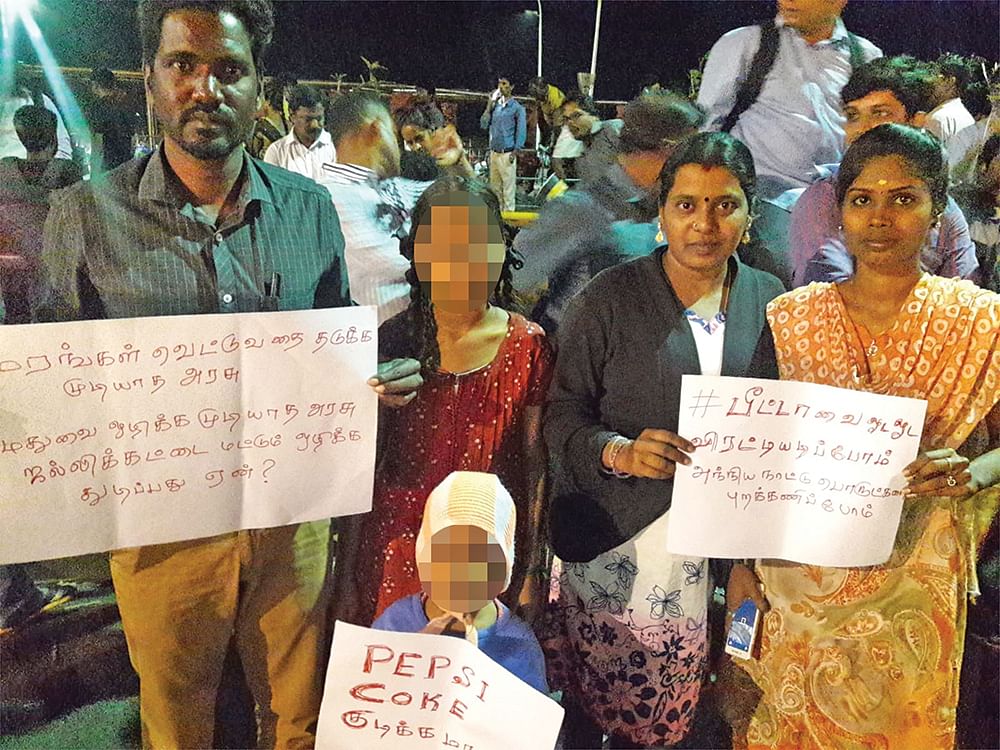 மரங்கள் வெட்டுவதை தடுக்க
முடியாத அரசு
மதுவை ஒழிக்க முடியாத அரசு
ஜல்லிக்கட்டை மட்டும் ஒழிக்க
துடிப்பது ஏன்?
# பீட்டாவை ஓட ஓட
விரட்டியடிப்போம்
அந்நிய நாட்டு பொருட்களை
புறக்கணிப்போம்
PEPSI
COKE
குடிக்கமா